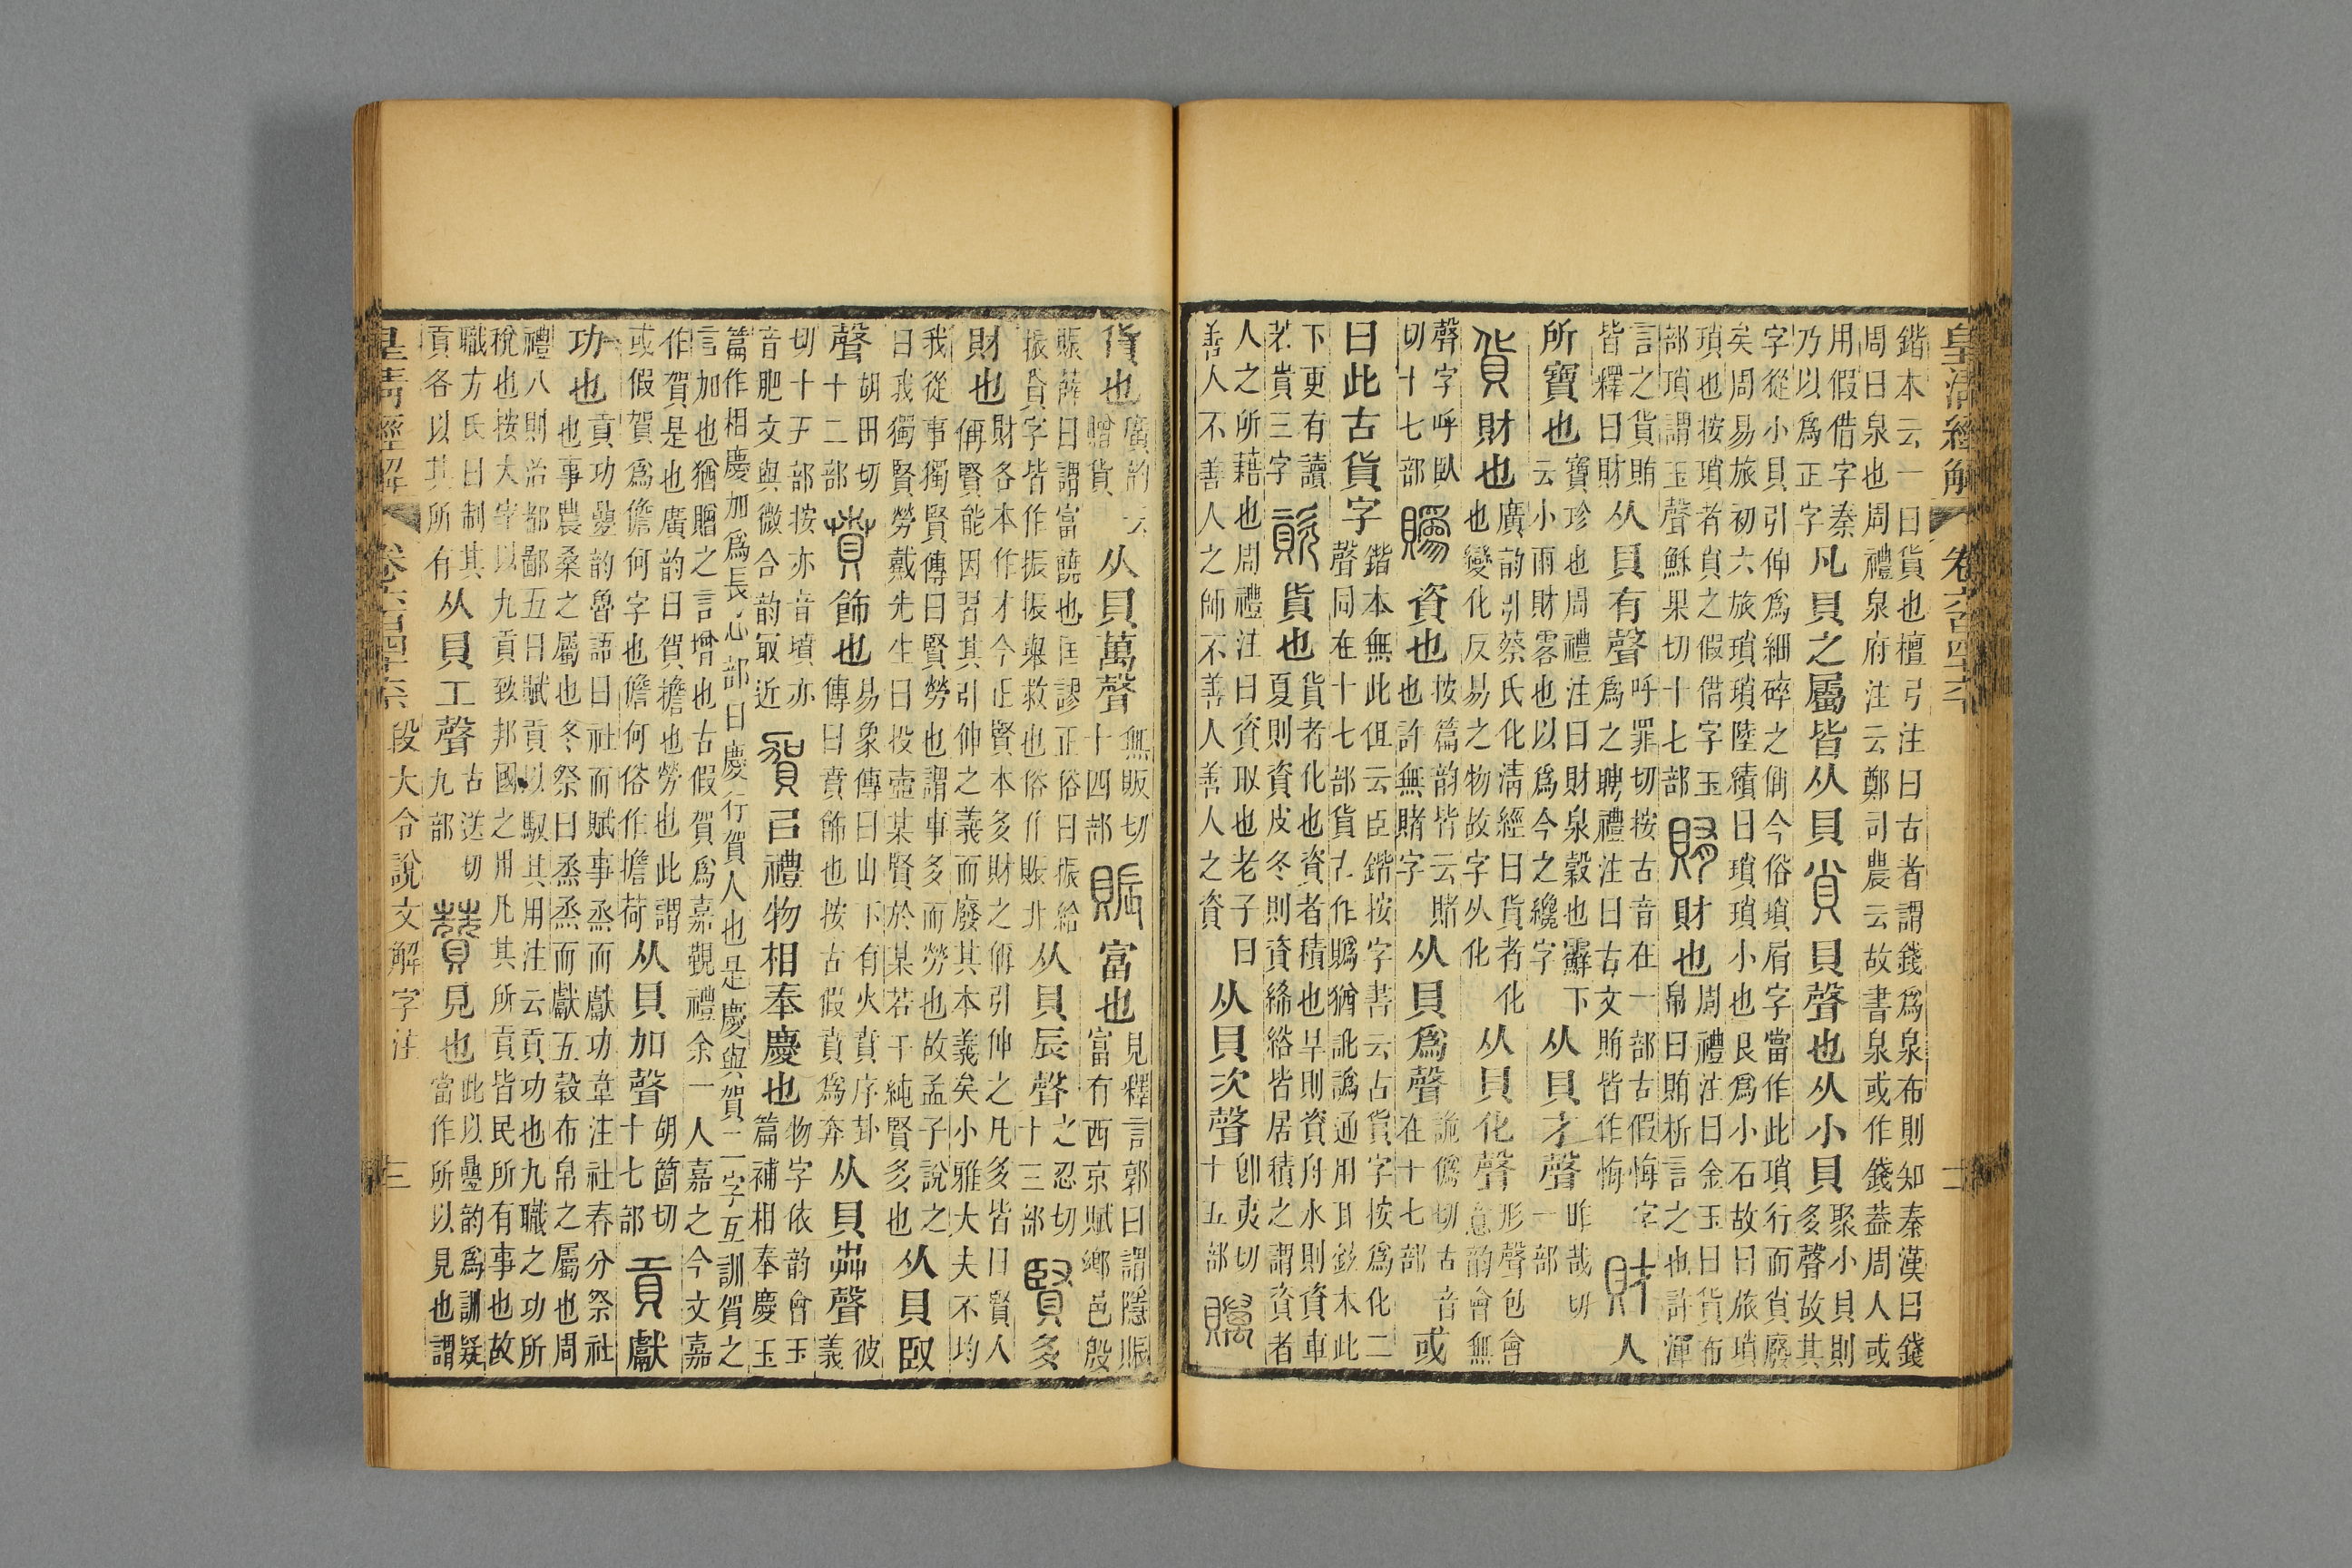 皇清經解　卷六百四十六　二
鍇本云一曰貨也檀弓注曰古者謂錢爲泉布則知秦漢曰錢
周曰泉也周禮泉府注云鄭司農云故書泉或作錢葢周人或
用假借字秦
乃以爲正字
凡貝之屬皆从貝
𧴪貝聲也从小貝
聚小貝則
多聲故其
字從小貝引伸爲細碎之偁今俗瑣屑字當作此瑣行而𧴪廢
矣周易旅初六旅瑣瑣陸績曰瑣瑣小也艮爲小石故曰旅瑣
瑣也按瑣者𧴪之假借字玉
部瑣謂玉聲穌果切十七部
賄財也
周禮注曰金玉曰貨布
帛曰賄析言之也許渾
言之貨賄
皆釋曰財
从貝有聲
呼罪切按古音在一部古假悔字
爲之聘禮注曰古文賄皆作悔
財人
所寶也
寶珍也周禮注曰財泉穀也下
云小雨財零也以爲今之纔字
从貝才聲
昨哉切
一部
貨財也
廣韵引蔡氏化淸經曰貨者化
也變化反易之物故字从化
从貝化聲
形聲包會
意韵會無
聲字呼臥
切十七部
䞈資也
按篇韵皆云賭
也許無賭字
从貝爲聲
詭僞切古音
在十七部
或
曰此古貨字
鍇本無此但云臣鍇按字書云古貨字按爲化二
聲同在十七部貨古作䞈猶訛譌通用耳鉉本此
下更有讀
若貴三字
資貨也
貨者化也資者積也旱則資舟水則資車
夏則資皮冬則資絺綌皆居積之謂資者
人之所藉也周禮注曰資取也老子曰
善人不善人之師不善人善人之資
从貝次聲
卽夷切
十五部
贎
貨也
廣韵云
贈貨
从貝萬聲
無販切
十四部
賑富也
見釋言郭曰謂隱賑
富有西京賦鄉邑殷
賑薛曰謂富饒也匡謬正俗曰振給
振貸字皆作振振舉救也俗作賑非
从貝辰聲
之忍切
十三部
賢多
財也
財各本作才今正賢本多財之偁引伸之凡多皆曰賢人
偁賢能因習其引伸之義而廢其本義矣小雅大夫不均
我從事獨賢傳曰賢勞也謂事多而勞也故孟子說之
曰我獨賢勞戴先生曰投壺某賢於某若干純賢多也
从貝臤
聲
胡田切
十二部
賁飾也
易象傳曰山下有火賁序卦
傳曰賁飾也按古假賁爲奔
从貝卉聲
彼
義
切十五部按亦音墳亦
音肥文與微合韵冣近
賀㠯禮物相奉慶也
物字依韵會玉
篇補相奉慶玉
篇作相慶加爲長心部曰慶行賀人也是慶與賀二字互訓賀之
言加也猶贈之言增也古假賀爲嘉覲禮余一人嘉之今文嘉
作賀是也廣韵曰賀擔也勞也此謂
或假賀爲儋何字也儋何俗作擔荷
从貝加聲
胡箇切
十七部
貢獻
功也
貢功㬪韵魯語曰社而賦事烝而獻功韋注社春分祭社
也事農桑之屬也冬祭曰烝烝而獻五穀布帛之屬也周
禮八則治都鄙五曰賦貢以馭其用注云貢功也九職之功所
稅也按大宰以九貢致邦國之用凡其所貢皆民所有事也故
職方氏曰制其
貢各以其所有
从貝工聲
古送切
九部
贊見也
此以㬪韵爲訓疑
當作所以見也謂
皇清經解　卷六百四十六　段大令說文解字注　三